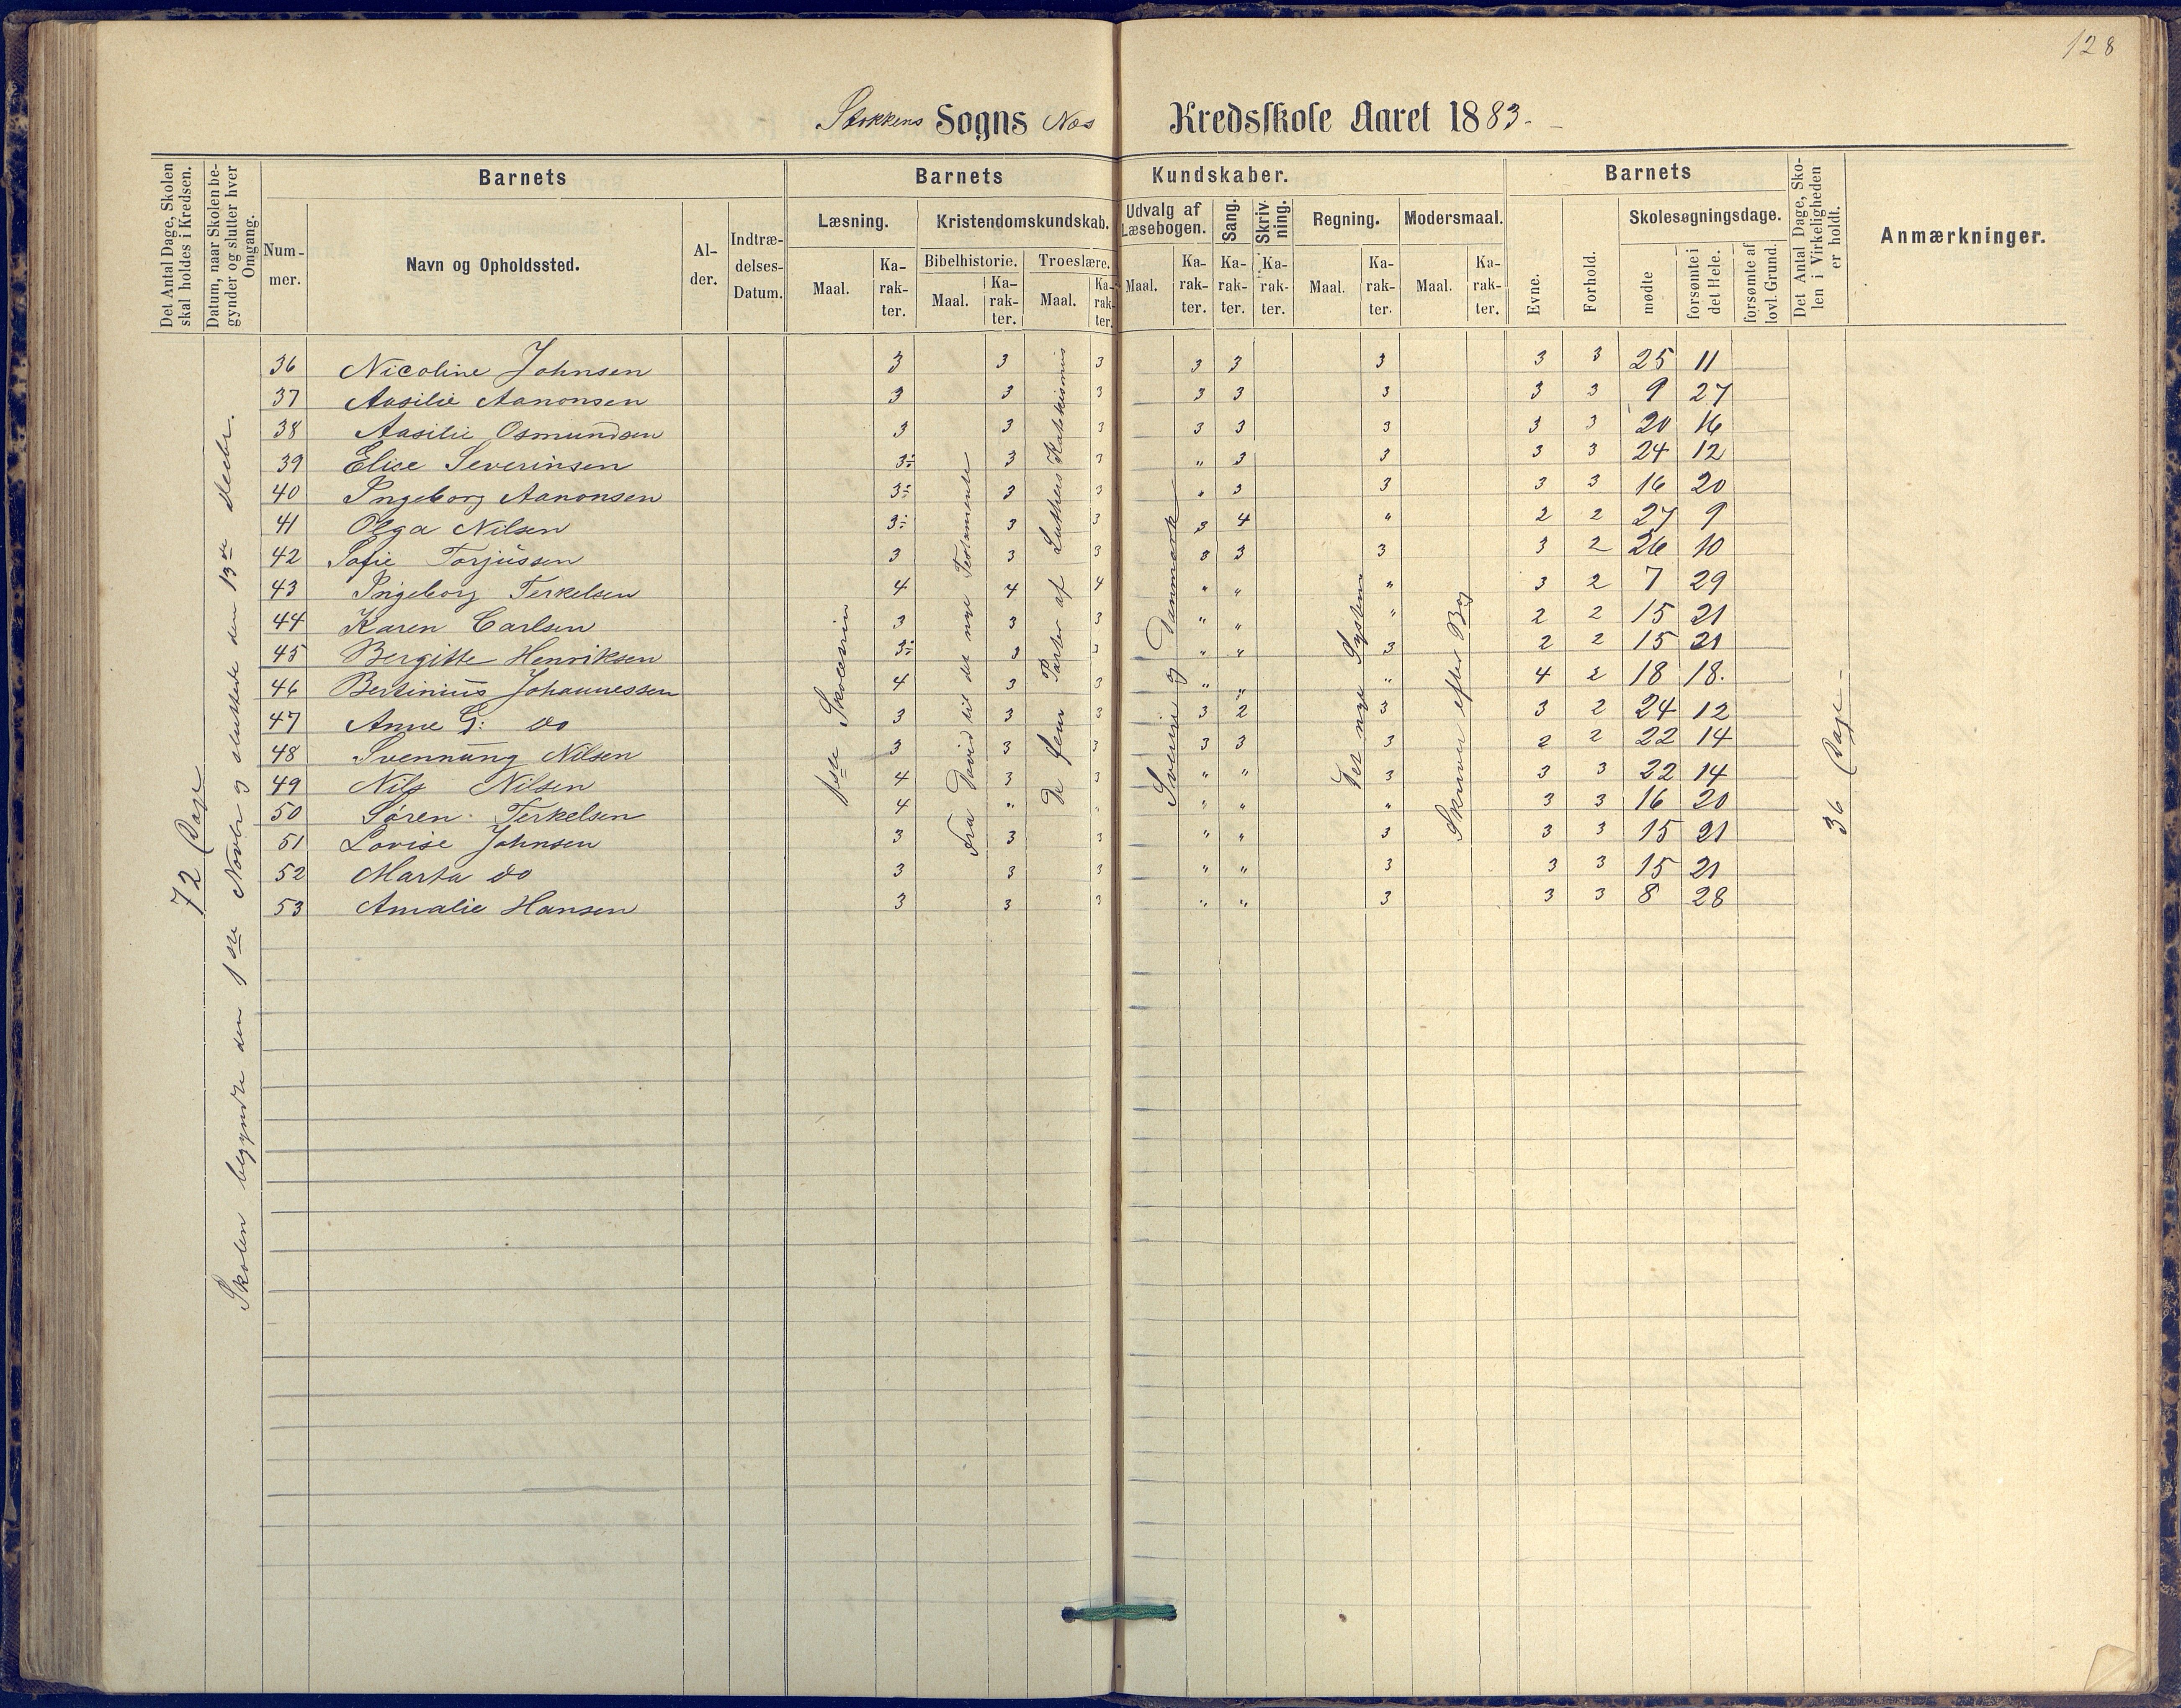 128
Stokkens Sogns Næs Kredsskole Aaret 1883.
Det Antal Dage, Skolen skal holdes i Kredsen.
Datum, naar Skolen begynder og slutter hver Omgang.
Barnets
Nummer.
Navn og Opholdssted.
Alder.
Indtrædelses-Datum.
Barnets Kundskaber.
Læsning.
Maal. Karakter.
Kristendomskundskab.
Bibelhistorie. Troeslære.
Maal. Karakter. Maal. Karakter.
Udvalg af Læsebogen.
Maal. Karakter.
Sang. Karakter.
Skrivning. Karakter.
Regning.
Maal. Karakter.
Modersmaal.
Maal. Karakter.
Barnets
Evne.
Forhold.
Skolesøgningsdage.
mødte
forsømte i det Hele.
forsømte af lovl. Grund.
Det Antal Dage, Skolen i Virkeligheden er holdt.
Anmærkninger.
72 Dage
Skolen begyndte den 1ste Novbr og sluttede den 13de Decbr.
1ste
Fra David til det nye Testamente
De fem Parter af Luthers Katekismus
Sverrig og Danmark
Det nye System
Skriver efter Bog
36 Dage
36 Nicoline Johnsen 3 3 3 3 3 3 3 3 25 11
37 Aasilie Aanonsen 3 3 3 3 3 3 3 3 9 27
38 Aasilie Osmundsen 3 3 3 3 3 3 3 3 20 16
39 Elise Severinsen 3÷ 3 3 " 3 3 3 3 24 12
40 Ingeborg Aanonsen 3÷ 3 3 " 3 3 3 3 16 20
41 Olga Nilsen 3÷ 3 3 3 4 " 2 2 27 9
42 Sofie Torjussen 3 3 3 3 3 3 3 2 26 10
43 Ingeborg Terkelsen 4 4 4 " " " 3 2 7 29
44 Karen Carlsen 3 3 3 " " " 2 2 15 21
45 Bergitte Henriksen 3÷ 3 3 " " 3 2 2 15 21
46 Bertinius Johannessen 4 3 3 " " " 4 2 18 18.
47 Anne G: do 3 3 3 3 2 3 3 2 24 12
48 Svennung Nilsen 3 3 3 3 3 3 2 2 22 14
49 Nils Nilsen 4 3 3 " " 3 3 3 22 14
50 Søren Terkelsen 4 " " " " " 3 3 16 20
51 Lovise Johnsen 3 3 3 " " 3 3 3 15 21
52 Marta do 3 3 3 " " 3 3 3 15 21
53 Amalie Hansen 3 3 3 " " 3 3 3 8 28